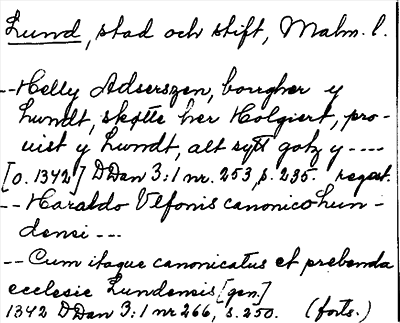 Lund, stad och stift, Malm. l.
--Helly Adserszen, borgher y
Lundt, skøtte her Holgiert, pro-
uist y Lundt, alt sytt gotz y ----
[o. 1342] DDan 3:1 nr. 253, s. 235. regest.
-- Haraldo Vffonis canonico Lun-
densi ---
-- Cum itaque canonicatus et prebenda
ecclesie Lundensis [gen.]
1342 DDan 3:1 nr 266, s. 250. (forts.)